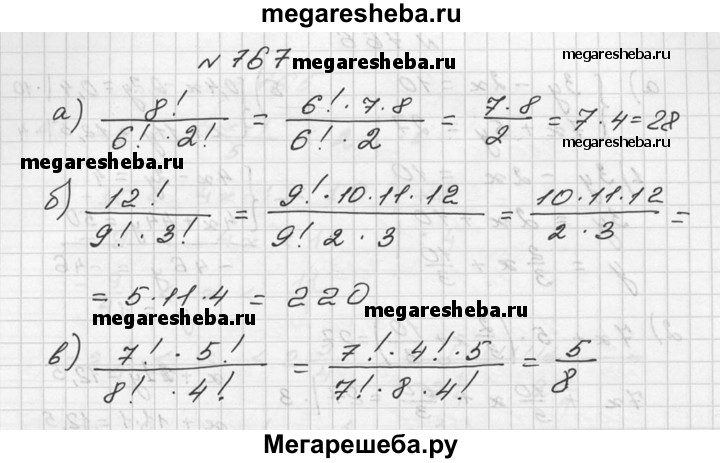 megaresheba.ru
№ 767 megaresheba.ru megaresheba.ru
а) 8! / (6! · 2!) = (6! · 7 · 8) / (6! · 2) = (7 · 8) / 2 = 7 · 4 = 28
megaresheba.ru megaresheba.ru
б) 12! / (9! · 3!) = (9! · 10 · 11 · 12) / (9! 2 · 3) = (10 · 11 · 12) / (2 · 3) =
= 5 · 11 · 4 = 220
megaresheba.ru megaresheba.ru
в) (7! · 5!) / (8! · 4!) = (7! · 4! · 5) / (7! · 8 · 4!) = 5 / 8
Мегарешеба.ру